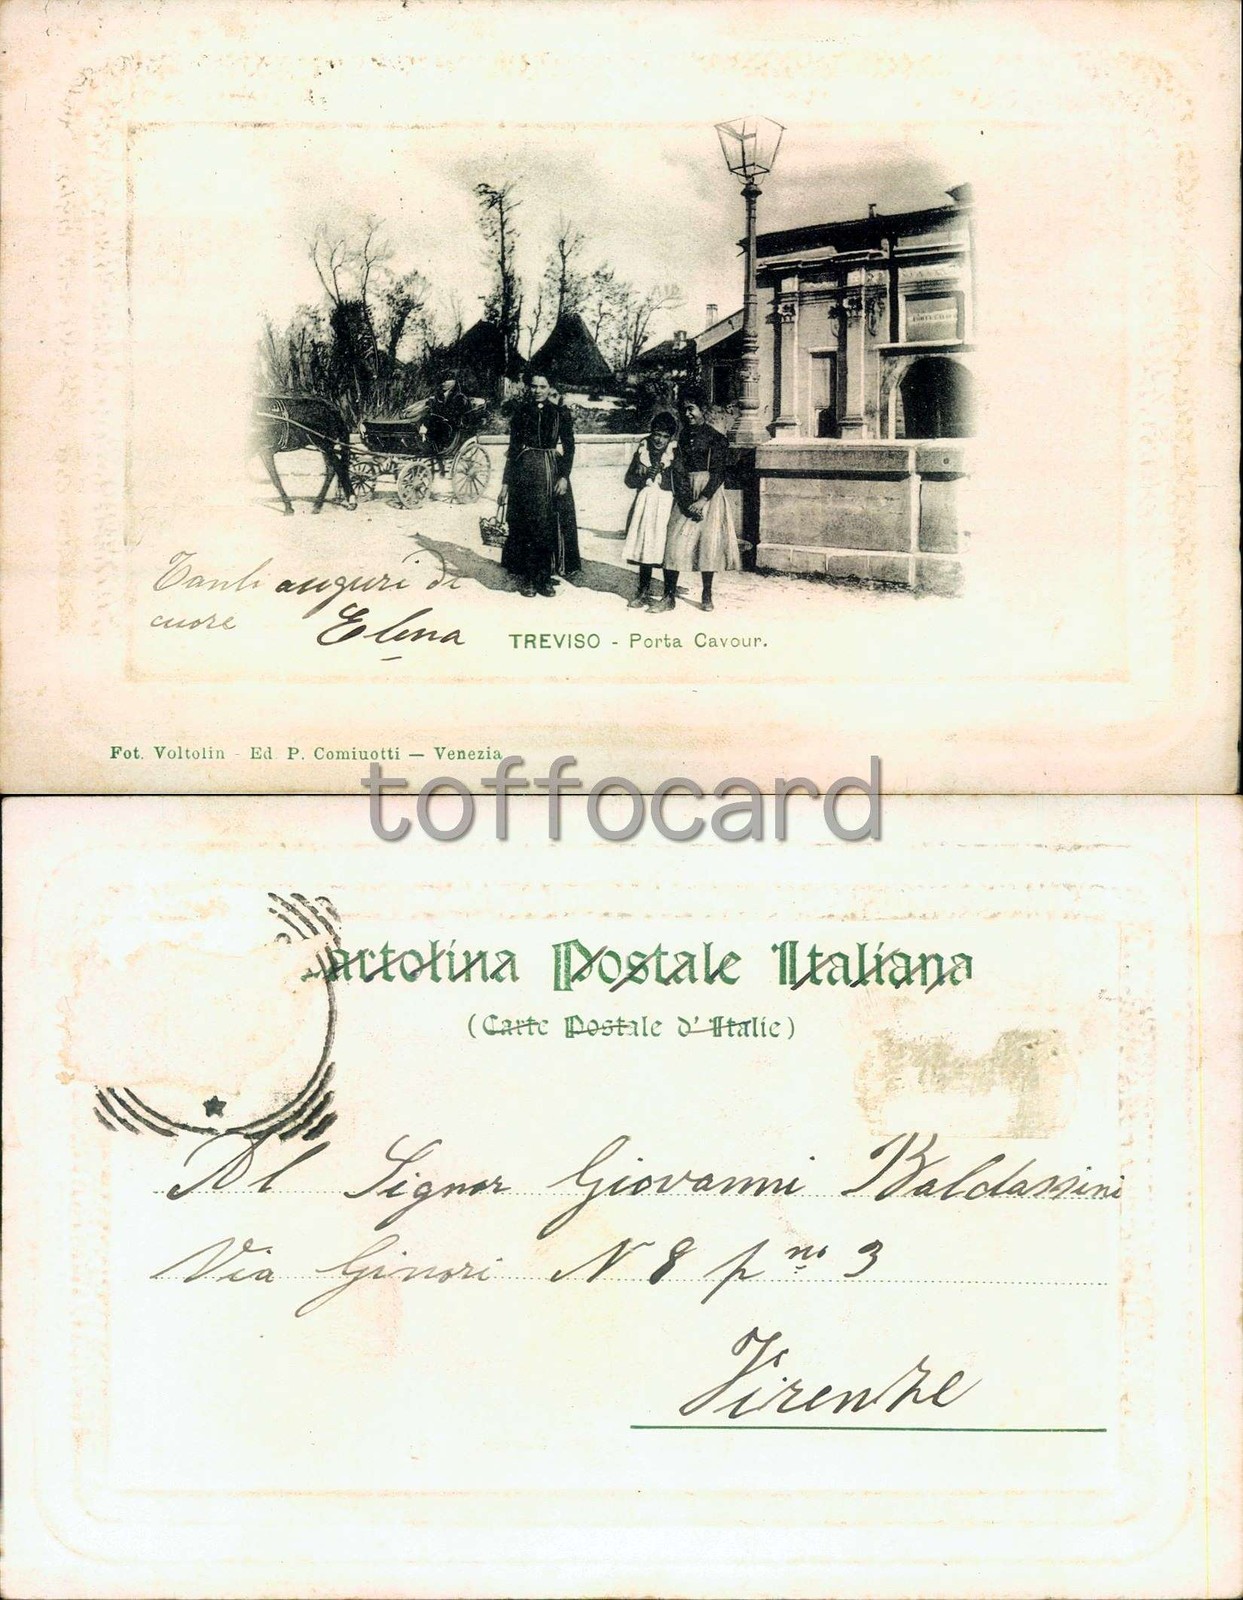 Tanti auguri di
cuore Elena
TREVISO - Porta Cavour.
Fot. Voltolin - Ed. P. Comiuotti — Venezia
toffocard
artolina Postale Italiana
(Carte Postale d'Italie)
Al Signor Giovanni Baldassini
Via Ginori N 8 p no 3
Firenze